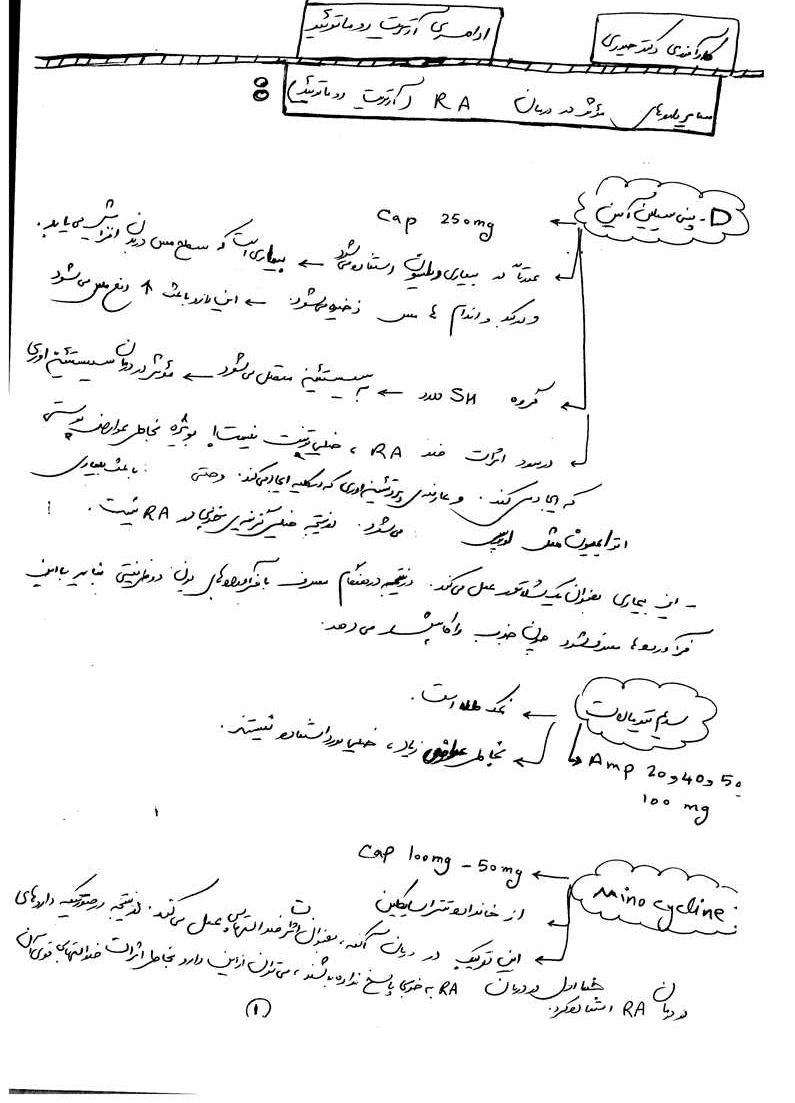 کارآموزی دکتر حیدری
ادامه‌ی آرتریت روماتوئید
سایر داروهای مؤثر در درمان RA (آرتریت روماتوئید) :
D - پنی سیلین آمین
← Cap 250mg
← عمدتاً در بیماری ویلسون استفاده می‌شود ← بیماری است که سطح مس در بدن افزایش می‌یابد.
و در کبد و اندام ها مس ذخیره می‌شود. ← این دارو باعث ↑ دفع مس می‌شود
← گروه SH دارد ← به سیستئین متصل می‌شود ← مؤثر در درمان سیستئین اوری
← در مورد اثرات ضد RA ، خیلی مثبت نیست! بویژه بخاطر عوارض پوستی
که ایجاد می کند. و عارضه‌ی پروتئین اوری که در کلیه ایجاد می‌کند. و حتی باعث بیماری
اتوایمیون مثل لوپوس می‌شود. در نتیجه خیلی گزینه‌ی خوبی در RA نیست.
- این بیماری بعنوان یک شلاتور عمل می‌کند. در نتیجه در هنگام مصرف با فرآورده‌های یون دو ظرفیتی نباید با این
فرآورده‌ها مصرف شود چون جذب را کاهش می دهد.
سدیم تیومالات
← نمک طلا است.
← بخاطر عوارض زیاد، خیلی مورد استفاده نیستند.
Amp 20 و 40 و 50
100 mg
Minocycline
← Cap 100mg - 50mg
← از خانواده تتراسایکلین
← این ترکیب در درمان آکنه، بعنوان اثر ضد التهابی عمل می کند. در نتیجه در صورتیکه داروهای
خط اول در درمان RA به خوبی پاسخ نداده باشند، می‌توان از این دارو بخاطر اثرات ضد التهابی قوی آن
در درمان RA استفاده کرد.
①